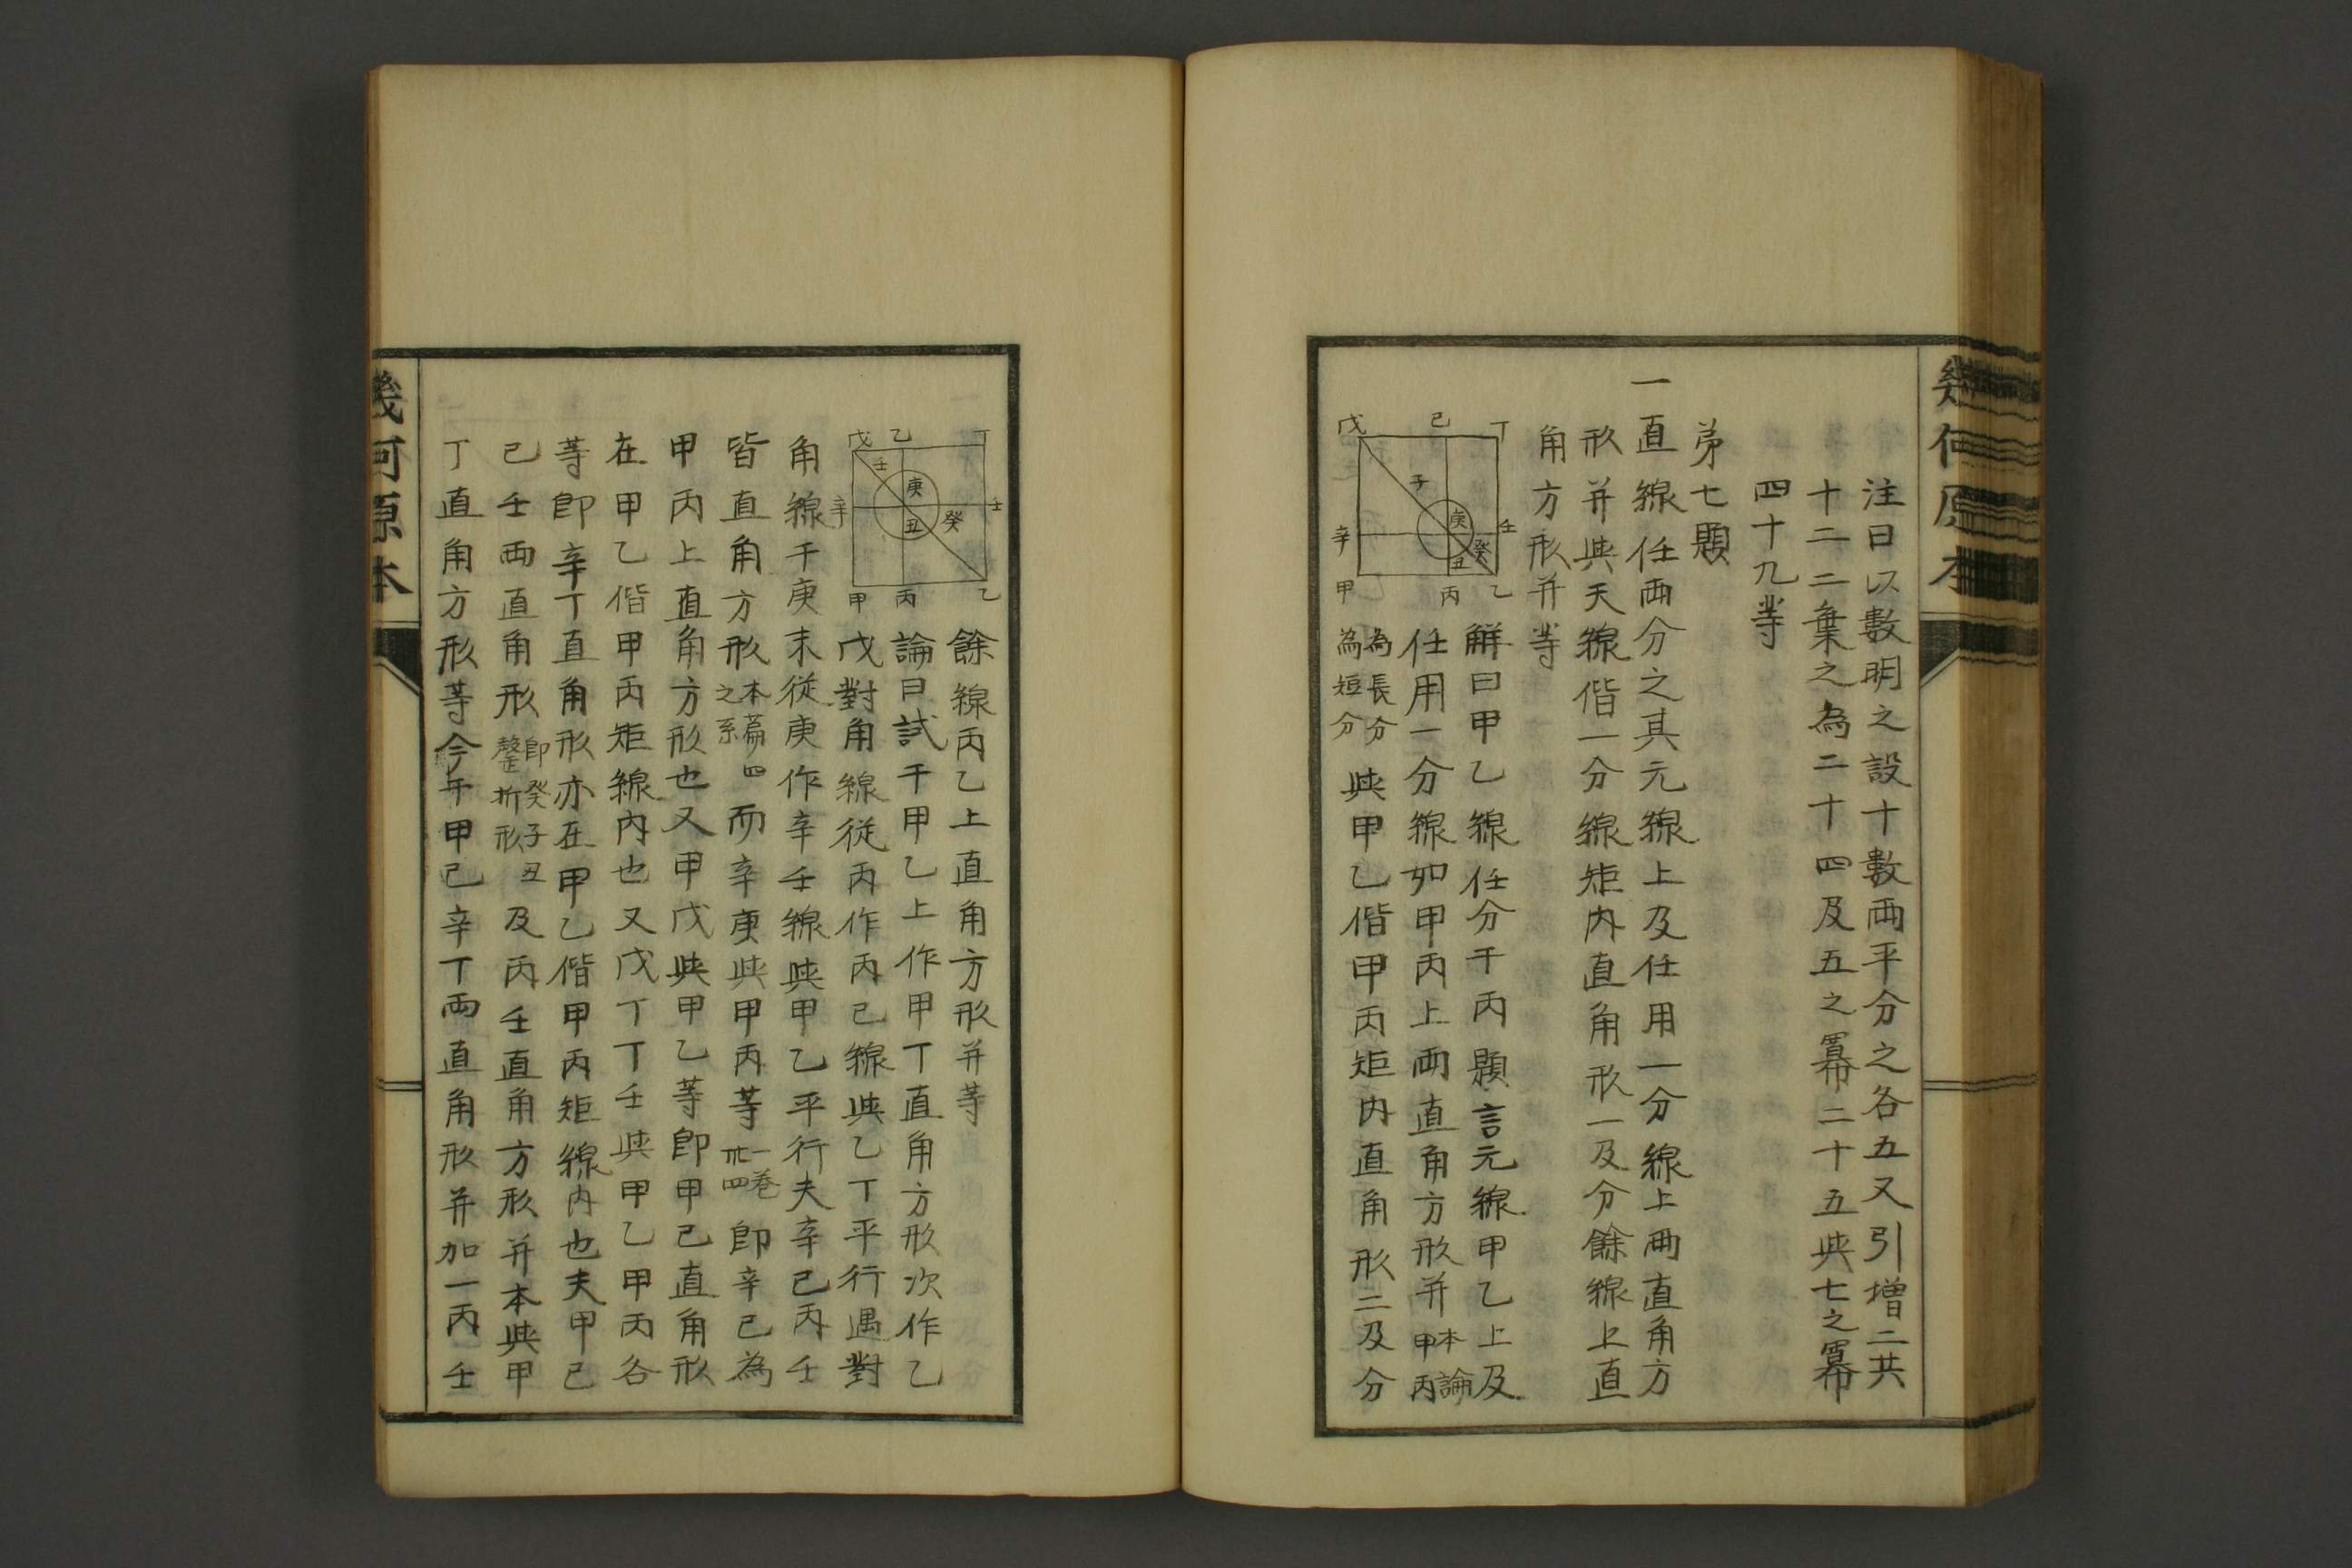 幾何原本
注曰以數明之設十數兩平分之各五又引增二共
十二二乗之為二十四及五之羃二十五與七之羃
四十九等
第七題
一直線任兩分之其元線上及任用一分線上兩直角方
形并與天線偕一分線矩内直角形一及分餘線上直
角方形并等
戊 己 丁
子
庚
辛 壬
癸
丑
甲 丙 乙
觧曰甲乙線任分于丙題言元線甲乙上及
任用一分線如甲丙上兩直角方形并本論甲丙
為長分為短分與甲乙偕甲丙矩内直角形二及分
餘線丙乙上直角方形并等
戊 乙 丁
壬 庚
辛 丑 癸 壬
甲 丙 乙
論曰試于甲乙上作甲丁直角方形次作乙
戊對角線從丙作丙己線與乙丁平行遇對
角線于庚末從庚作辛壬線與甲乙平行夫辛己丙壬
皆直角方形本篇四之系而辛庚與甲丙等一卷卅四即辛己為
甲丙上直角方形也又甲戊與甲乙等即甲己直角形
在甲乙偕甲丙矩線内也又戊丁丁壬與甲乙甲丙各
等即辛丁直角形亦在甲乙偕甲丙矩線内也夫甲己
己壬兩直角形即癸子丑罄折形及丙壬直角方形并本與甲
丁直角方形等今于甲己辛丁兩直角形并加一丙壬
幾何原本